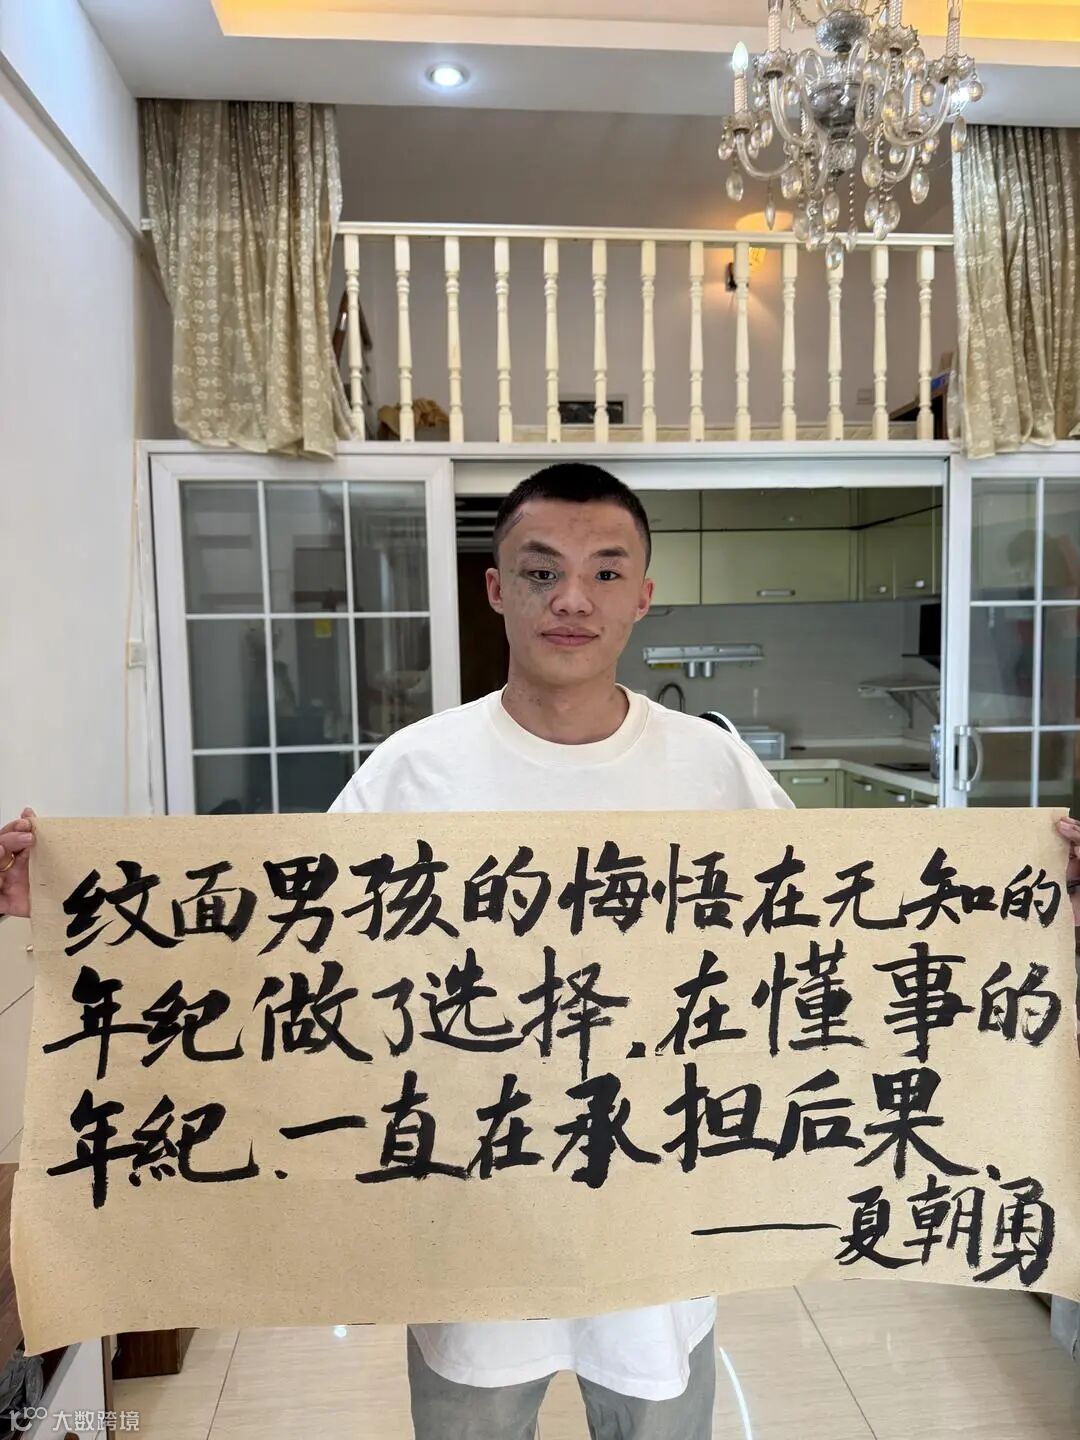 纹面男孩的悔悟在无知的
年纪做了选择.在懂事的
年紀.一直在承担后果.
——夏朝勇
大数跨境